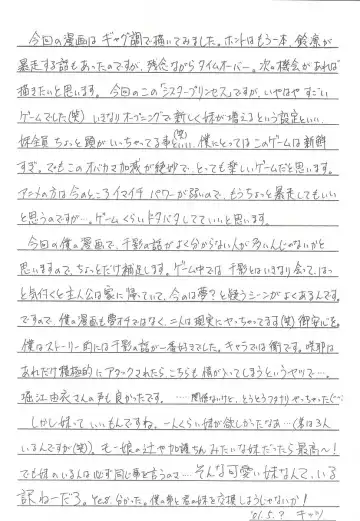 今回の漫画はギャグ調で描いてみました。ホントはもう一本、鈴凛が
暴走する話もあったのですが、残念ながらタイムオーバー。次の機会があれば
描きたいと思います。今回のこの「シスタープリンセス」ですが、いやはやすごい
ゲームでした(笑) いきなりオープニングで新しく妹が増えるという設定といい、
妹全員ちょっと頭がいっちゃってる事といい(笑)、僕にとってはこのゲームは新鮮
すぎ。でもこのオバカマ加減が絶妙で、とっても楽しいゲームだと思います。
アニメの方は今のところイマイチパワーが弱いので、もうちょっと暴走してもいい
と思うのですが…。ゲームくらいドタバタしてていいと思います。
今回の僕の漫画で、千影の話がよく分からない人が多いんじゃないかと
思いますので、ちょっとだけ補足します。ゲーム中では千影とはいきなり会って、はっ
と気付くと主人公は家に帰っていて、今のは夢?と疑うシーンがよくあるんです。
ですので、僕の漫画も夢オチではなく、二人は現実にやっちゃってます(笑)御安心を。
僕はストーリー的には千影の話が一番好きでした。キャラでは衛です。咲耶は
あれだけ積極的にアタックされたら、こちらも情が入ってしまうというヤツで…。
堀江由衣さんの声も良かったです。……関係ないけど、とうとうフタナリやっちゃった(…
しかし妹っていいもんですね。一人くらい妹が欲しかったなあ…(弟は3人
いるんですが(笑)。モー娘の辻や加護ちんみたいな妹だったら最高〜!
でも妹のいる人は必ず同じ事を言うのさ…そんな可愛い妹なんて、いる
訳ねーだろ。Yes,分かった。僕の弟と君の妹を交換しようじゃないか!
'01.5.?